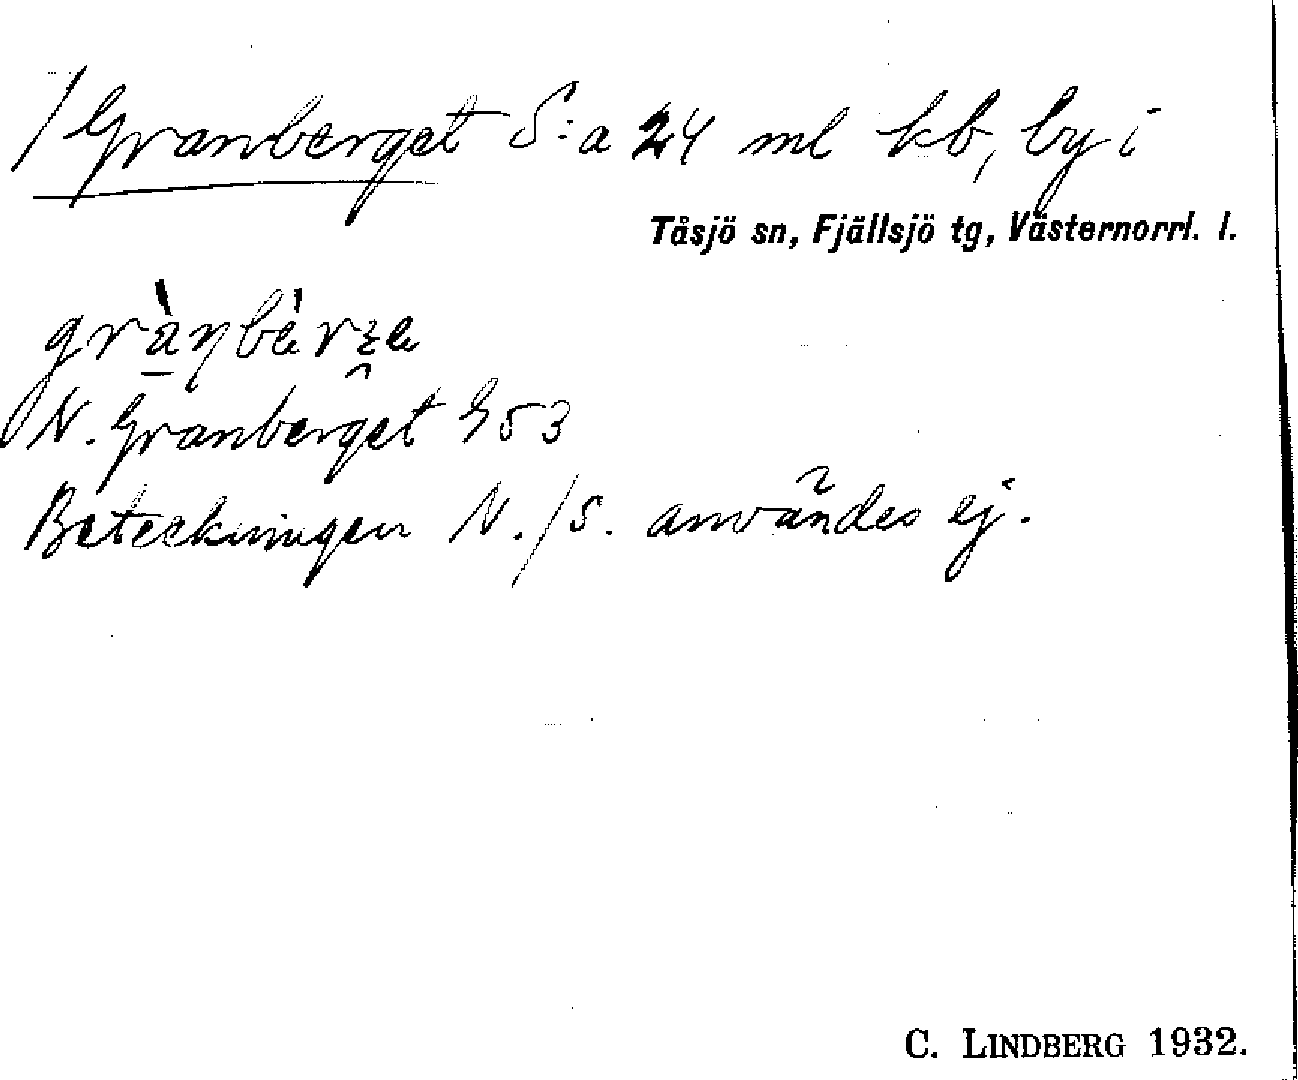 / Granberget S:a 24 ml kb, by i
Tåsjö sn, Fjällsjö tg, Västernorrl. l.
N. Granberget 953
Beteckningen N./S. användes ej.
C. LINDBERG 1932.